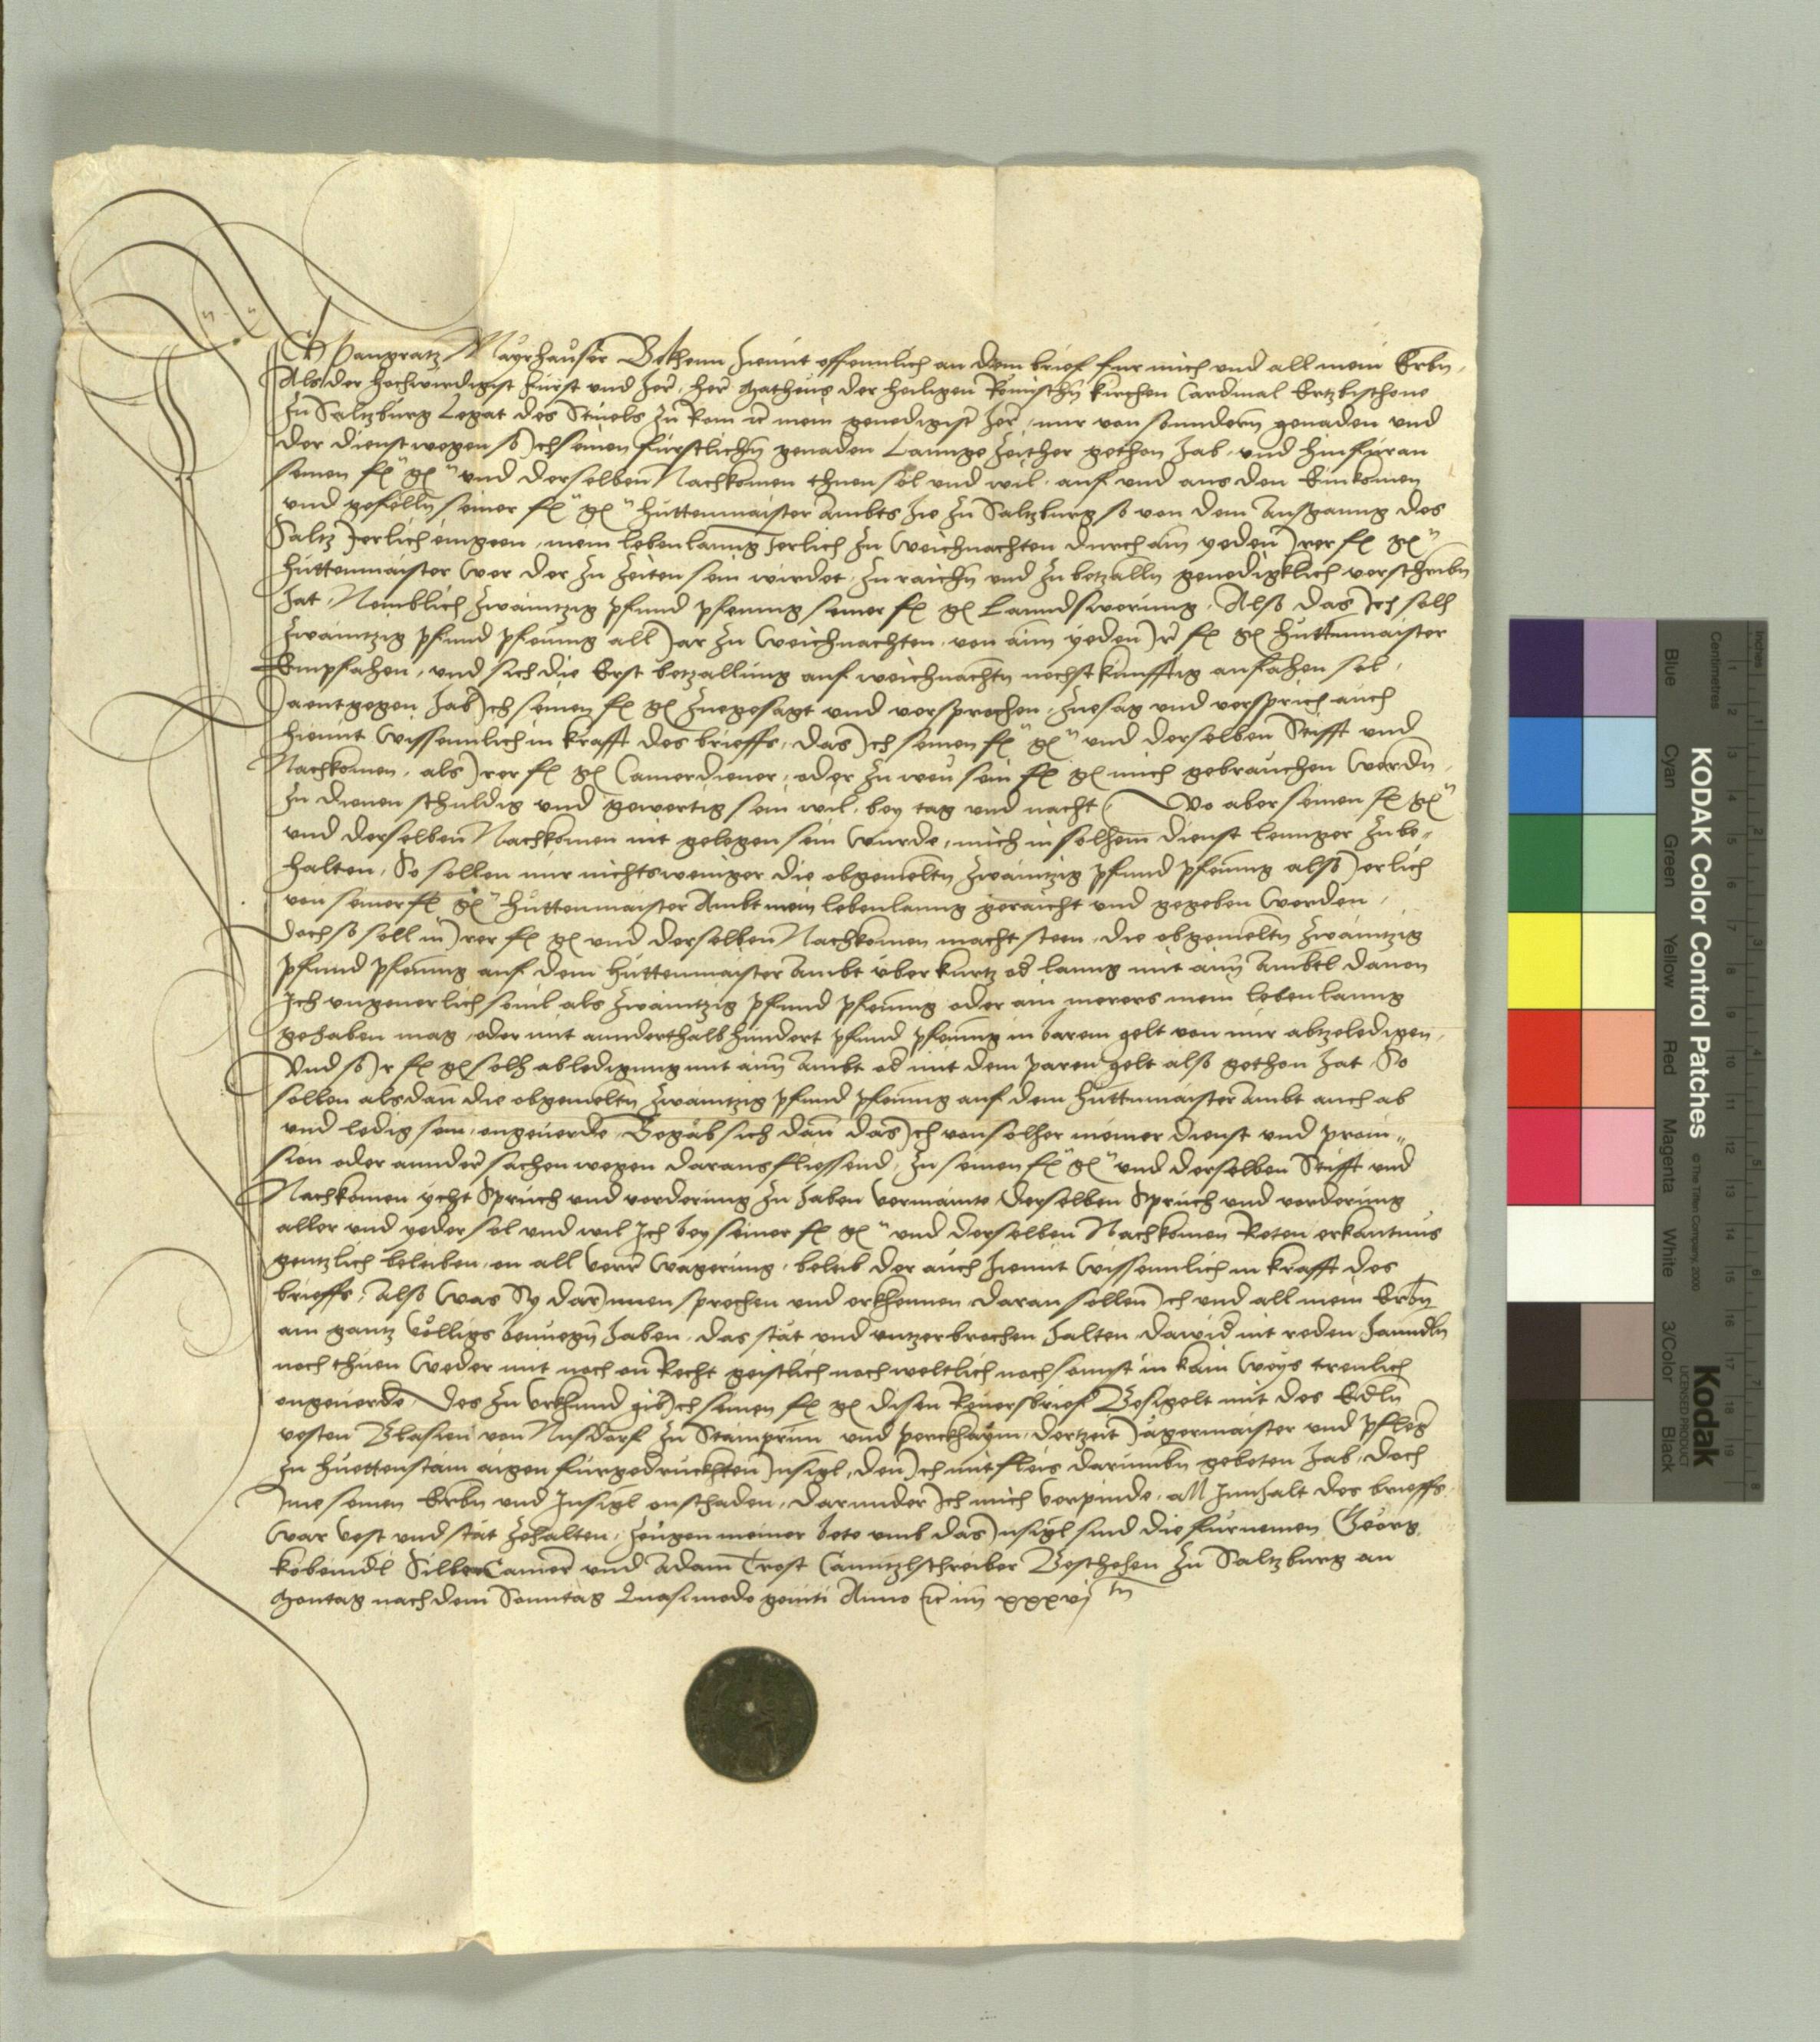 Ich Pangratz Mayrhauser Bekhenn hiemit offennlich an dem brief fur mich und all mein Erbn,
Als der hochwirdigist Fürst und her, her Matheus der heiligen Römischñ kirchen Cardinal Ertzbischoue
zu Saltzburg Legat des Stuels zu Rom rc mein genedigist her, mir von sonndern genaden und
der dienst wegen so Ich seinen fürstlichñ genaden Lannge zeither gethon hab, und hinfüran
seinen fl gl und derselben Nachkomen thuen sol und wil, auf und aus den Einkomen
und gefelln seiner fl gl huttenmaister Ambts hie zu Saltzburg so von dem Ausganng des
Saltz Jerlich eingeen, mein lebenlanng Jerlich zu Weichnachten durch ain yeden Irer fl gl
huttenmaister wer der zu zeiten sein wirdet, zu raichn und zu betzalln genedigklich verschribn
hat, Nemblich zwaintzig pfund pfenning seiner fl gl Lanndswerung, Also das Ich solh
zwaintzig pfund pfening all Jar zu Weichnachten, von aim yeden Ir fl gl huttenmaister
Empfahen, und sich die Erst betzallung auf weichnachtn nechstkunfftig anfahen sol,
Daentgegen hab Ich seinen fl gl zuegesagt und versprochen, zuesag und versprich auch
hiemit Wissennlich in krafft des brieffs, das Ich seinen fl gl und derselben Stifft und
Nachkomen, als Irer fl gl Camerdiener, oder zu weu sein fl gl mich gebrauchen Werdn,
zu dienen schuldig und gewertig sein wil, bey tag und nacht, Wo aber seinen fl gl
und derselben Nachkomen nit gelegen sein Wurde, mich in solhem dienst lennger zu be-
halten, So sollen mir nichtsweniger die obgemeltn zwaintzig pfund pfening also Jerlich
von seiner fl gl huttenmaister Ambt mein lebenlanng geraicht und gegeben Werden,
doch so soll in Irer fl gl und derselben Nachkomen macht steen, die obgemeltn zwaintzig
pfund pfening auf dem huttenmaister Ambt über kurtz od lanng mit aim Ambtl dauon
Ich ungeuerlich souil als zwaintzig pfund pfening oder ain merers mein lebenlanng
gehaben mag, oder mit annderthalbhundert pfund pfening in barem gelt von mir abtzeledigen,
Und so Ir fl gl solh abledigung mit aim Ambt od mit dem paren gelt also gethon hat, So
sollen alsdan die obgemeltn zwaintzig pfund pfening auf dem huttnmaister Ambt auch ab
und ledig sein, ongeuerde, Begab sich dan das Ich von solher meiner dienst und proui-
sion oder annder sachen wegen daraus fliessend, zu seinen fl gl und derselben Stifft und
Nachkomen ycht Spruch und vorderung zu haben vermainte, Derselben Spruch und vorderung
aller und yeder sol und wil Ich bey seiner fl gl und derselben Nachkomen Reten erkantnus
gentzlich beleiben, on all verrer Wagerung, beleib der auch hiemit Wissennlich in krafft des
brieffs, Also Was Sy darInnen sprechen und erkhennen, daran sollen Ich und all mein Erbn
ain gantz völligs benuegn haben, das stät und untzerbrochen halten, dawid nit reden hanndln
noch thuen Weder mit noch on Recht geistlich noch weltlich noch sonnst in kain Weys trewlich
ongeuerde, Des zu Urkhund gib Ich seinen fl gl disen Reuersbrief Besigelt mit des Edln
vesten Blasien von Nusdorf zu Stainprun und perckhaym, dertzeit Jägermaister und pfleg
zu huettenstain aigen furgedruckhten Insigl, den Ich mit fleis darumbn gebeten hab, doch
Ime seinen Erbn und Insigl onschaden, darunder Ich mich verpinde, all Innhalt des brieffs
war vest und stät zehalten, zeugen meiner bete umb das Insigl sind die furnemen Georg
Silber Camer und Adam Trost Canntzlschreiber Beschehen zu Saltzburg an
Montag nach dem Sonntag Quasimodo geniti Anno rc im xxxvj tn
KODAK Color Control Patches
© The Tiffen Company, 2000
Kodak
LICENSED PRODUCT
Inches
Centimetres
Blue
Cyan
Green
Yellow
Red
Magenta
White
3/Color
Black